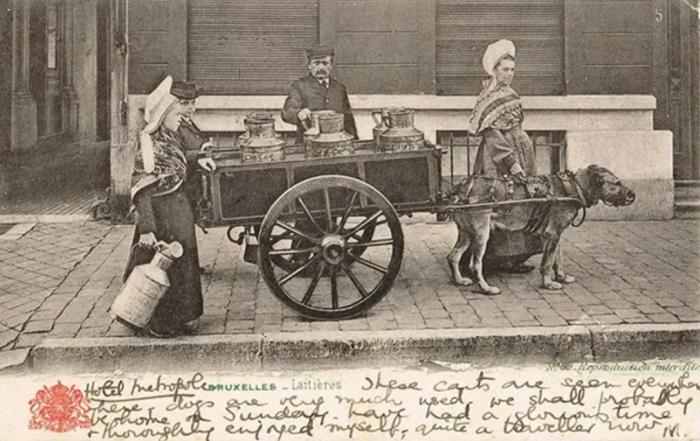 5
No. 40 Reproduction interdite
Hotel Metropole BRUXELLES - Laitières These carts are seen everywhere
these dogs are very much used, we shall probably
be home on Sunday, have had a glorious time
& thoroughly enjoyed myself, quite a traveller now M.